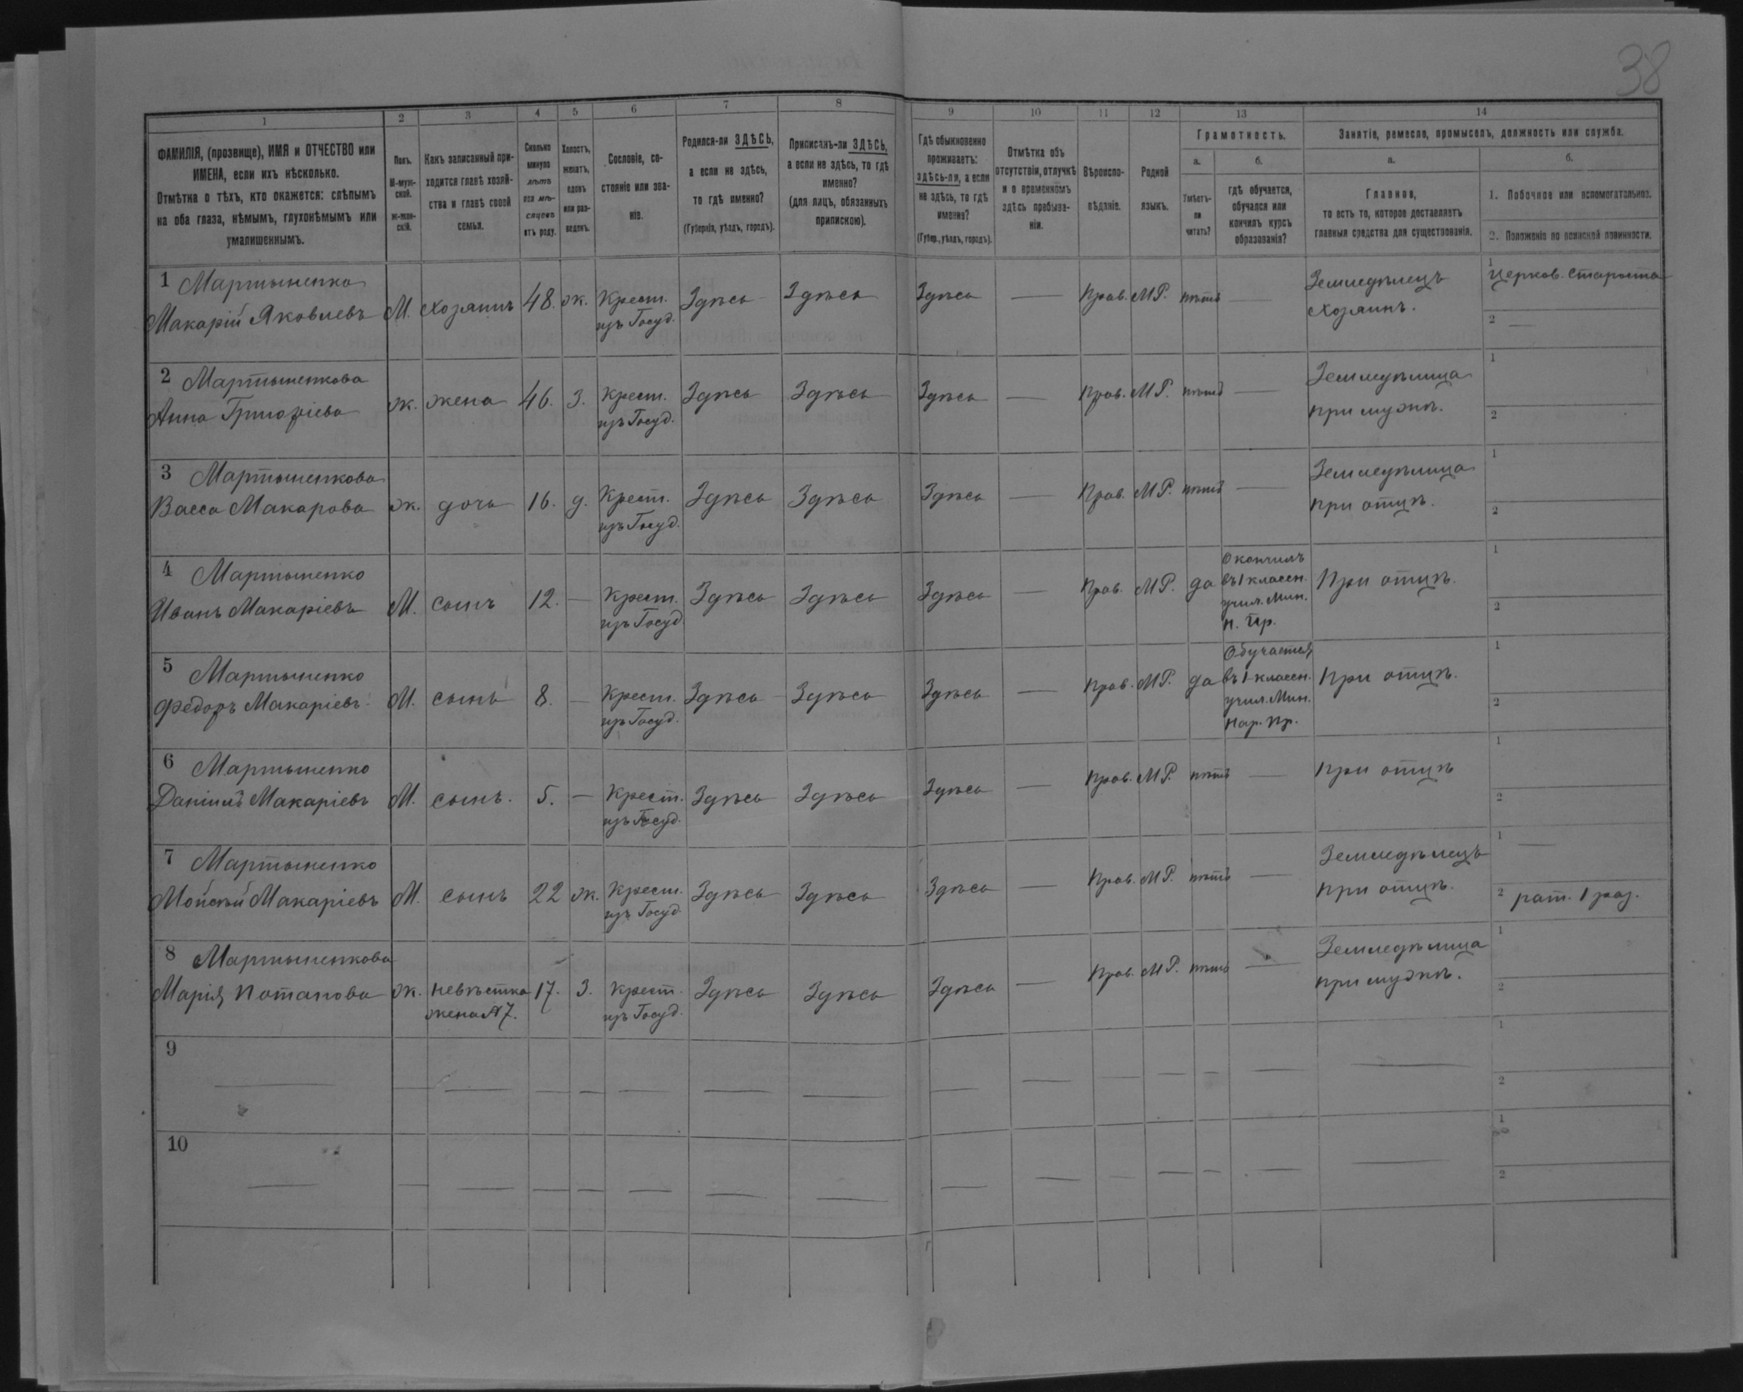 38
1 2 3 4 5 6 7 8 9 10 11 12 13 14
ФАМИЛІЯ, (прозвище), ИМЯ и ОТЧЕСТВО или
ИМЕНА, если ихъ нѣсколько.
Отмѣтка о тѣхъ, кто окажется: слѣпымъ
на оба глаза, нѣмымъ, глухонѣмымъ или
умалишеннымъ.
Полъ.
М-муж-
ской.
ж-жен-
скій.
Какъ записанный при-
ходится главѣ хозяй-
ства и главѣ своей
семьи.
Сколько
минуло
лѣтъ
или мѣ-
сяцевъ
отъ роду.
Холостъ,
женатъ,
вдовъ
или раз-
веденъ.
Сословіе, со-
стояніе или зва-
ніе.
Родился-ли ЗДѢСЬ,
а если не здѣсь,
то гдѣ именно?
(Губернія, уѣздъ, городъ).
Приписанъ-ли ЗДѢСЬ,
а если не здѣсь, то гдѣ
именно?
(для лицъ, обязанныхъ
припискою).
Гдѣ обыкновенно
проживаетъ:
здѣсь-ли, а если
не здѣсь, то гдѣ
именно?
(Губер., уѣздъ, городъ).
Отмѣтка объ
отсутствіи, отлучкѣ
и о временномъ
здѣсь пребыва-
ніи.
Вѣроиспо-
вѣданіе.
Родной
языкъ.
Грамотность.
а.
Умѣетъ-
ли
читать?
б.
гдѣ обучается,
обучался или
кончилъ курсъ
образованія?
Занятіе, ремесло, промыселъ, должность или служба.
а.
Главное,
то есть то, которое доставляетъ
главныя средства для существованія.
б.
1. Побочное или вспомогательное.
2. Положеніе по воинской повинности.
1 Мартыненко
Макарій Яковлевъ М. хозяинъ 48. ж. Крест.
изъ Госуд. Здѣсь Здѣсь Здѣсь — Прав. М.Р. нѣтъ — Земледѣлецъ
хозяинъ. 1 Церков. староста
2 —
2 Мартыненкова
Анна Григоріева ж. жена 46. З. Крест.
изъ Госуд. Здѣсь Здѣсь Здѣсь — Прав. М.Р. нѣтъ — Земледѣлица
при мужѣ. 1
2
3 Мартыненкова
Васса Макарова ж. дочь 16. д. Крест.
изъ Госуд. Здѣсь Здѣсь Здѣсь — Прав. М.Р. нѣтъ — Земледѣлица
при отцѣ. 1
2
4 Мартыненко
Иванъ Макаріевъ М. сынъ 12. — Крест.
изъ Госуд. Здѣсь Здѣсь Здѣсь — Прав. М.Р. да Окончилъ
въ 1 классн.
учил. Мин.
Н. Пр. При отцѣ. 1
2
5 Мартыненко
Федоръ Макаріевъ. М. сынъ 8. — Крест.
изъ Госуд. Здѣсь Здѣсь Здѣсь — Прав. М.Р. да Обучается
въ 1 классн.
учил. Мин.
Нар. Пр. При отцѣ. 1
2
6 Мартыненко
Даніилъ Макаріевъ М. сынъ. 5. — Крест.
изъ Госуд. Здѣсь Здѣсь Здѣсь — Прав. М.Р. нѣтъ — При отцѣ 1
2
7 Мартыненко
Мойсѣй Макаріевъ М. сынъ 22 ж. Крест.
изъ Госуд Здѣсь Здѣсь Здѣсь — Прав. М.Р. нѣтъ — Земледѣлецъ
при отцѣ. 1 —
2 рат. 1 раз.
8 Мартыненкова
Марія Потапова ж. невѣстка
жена №7. 17. З. Крест.
изъ Госуд. Здѣсь Здѣсь Здѣсь — Прав. М.Р. нѣтъ — Земледѣлица
при мужѣ. 1
2
9 — — — — — — — — — — — — — — — 1
2
10 — — — — — — — — — — — — — — 1
2